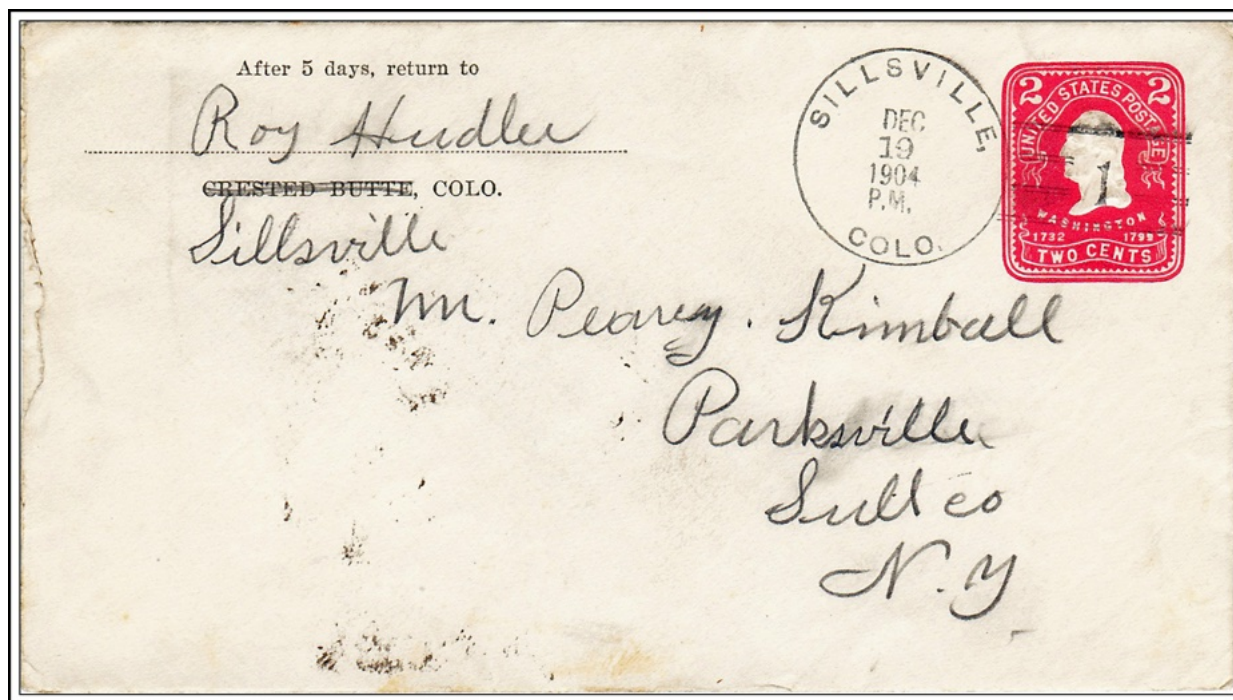 After 5 days, return to
Roy Hudler
CRESTED BUTTE, COLO.
Sillsville
SILLSVILLE,
DEC
19
1904
P.M.
COLO.
2 2
UNITED STATES POSTAGE
1
WASHINGTON
1732 1799
TWO CENTS
Mr. Pearcy. Kimball
Parksville
Sull co
N.Y